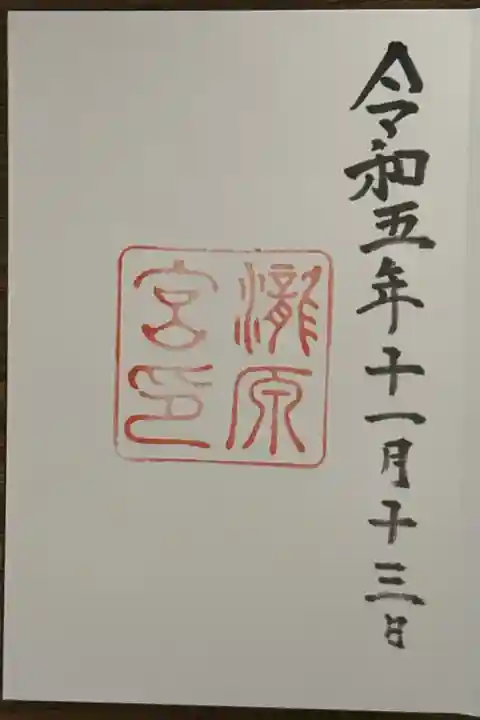 令和五年十一月十三日
瀧原
宮印